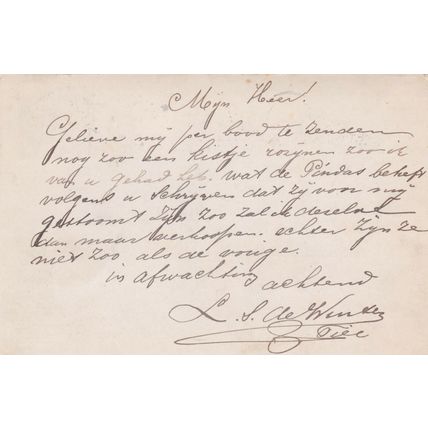 Mijn Heer!
Gelieve mij per bood te zenden
nog zoo een kistje rozijnen zoo ik
van u gehad heb. wat de Pindas betreft
volgens u Schrijven dat zij voor mij
gestoomt zijn zoo zal ik deselve
dan maar verkoopen. echter zijn ze
niet zoo als de vorige.
in afwachting
achtend
L. S. de Winter
Tiel